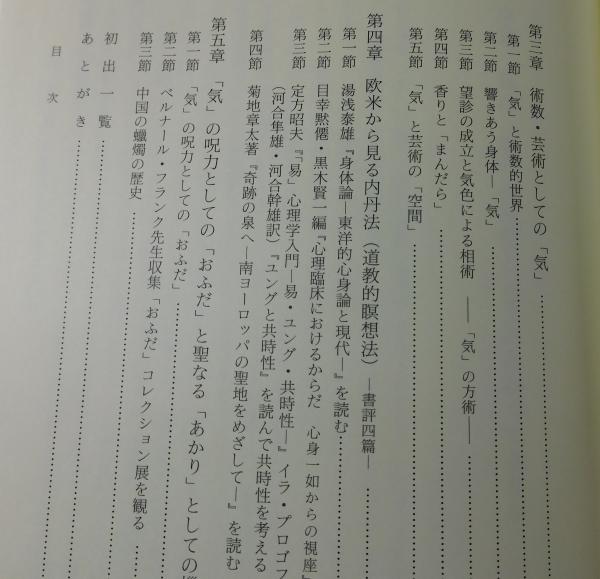 第三章　術数・芸術としての「気」
第一節　「気」と術数的世界
第二節　響きあう身体―「気」
第三節　望診の成立と気色による相術　――「気」の方術――
第四節　香りと「まんだら」
第五節　「気」と芸術の「空間」
第四章　欧米から見る内丹法（道教的瞑想法）―書評四篇―
第一節　湯浅泰雄『身体論―東洋的心身論と現代―』を読む
第二節　目幸黙僊・黒木賢一編『心理臨床におけるからだ　心身一如からの視座』
第三節　定方昭夫『「易」心理学入門―易・ユング・共時性―』イラ・プロゴフ
（河合隼雄・河合幹雄訳）『ユングと共時性』を読んで共時性を考える
第四節　菊地章太著『奇跡の泉へ―南ヨーロッパの聖地をめざして―』を読む
第五章　「気」の呪力としての「おふだ」と聖なる「あかり」としての
第一節　「気」の呪力としての「おふだ」
第二節　ベルナール・フランク先生収集「おふだ」コレクション展を観る
第三節　中国の蠟燭の歴史
初出一覧
あとがき
目次